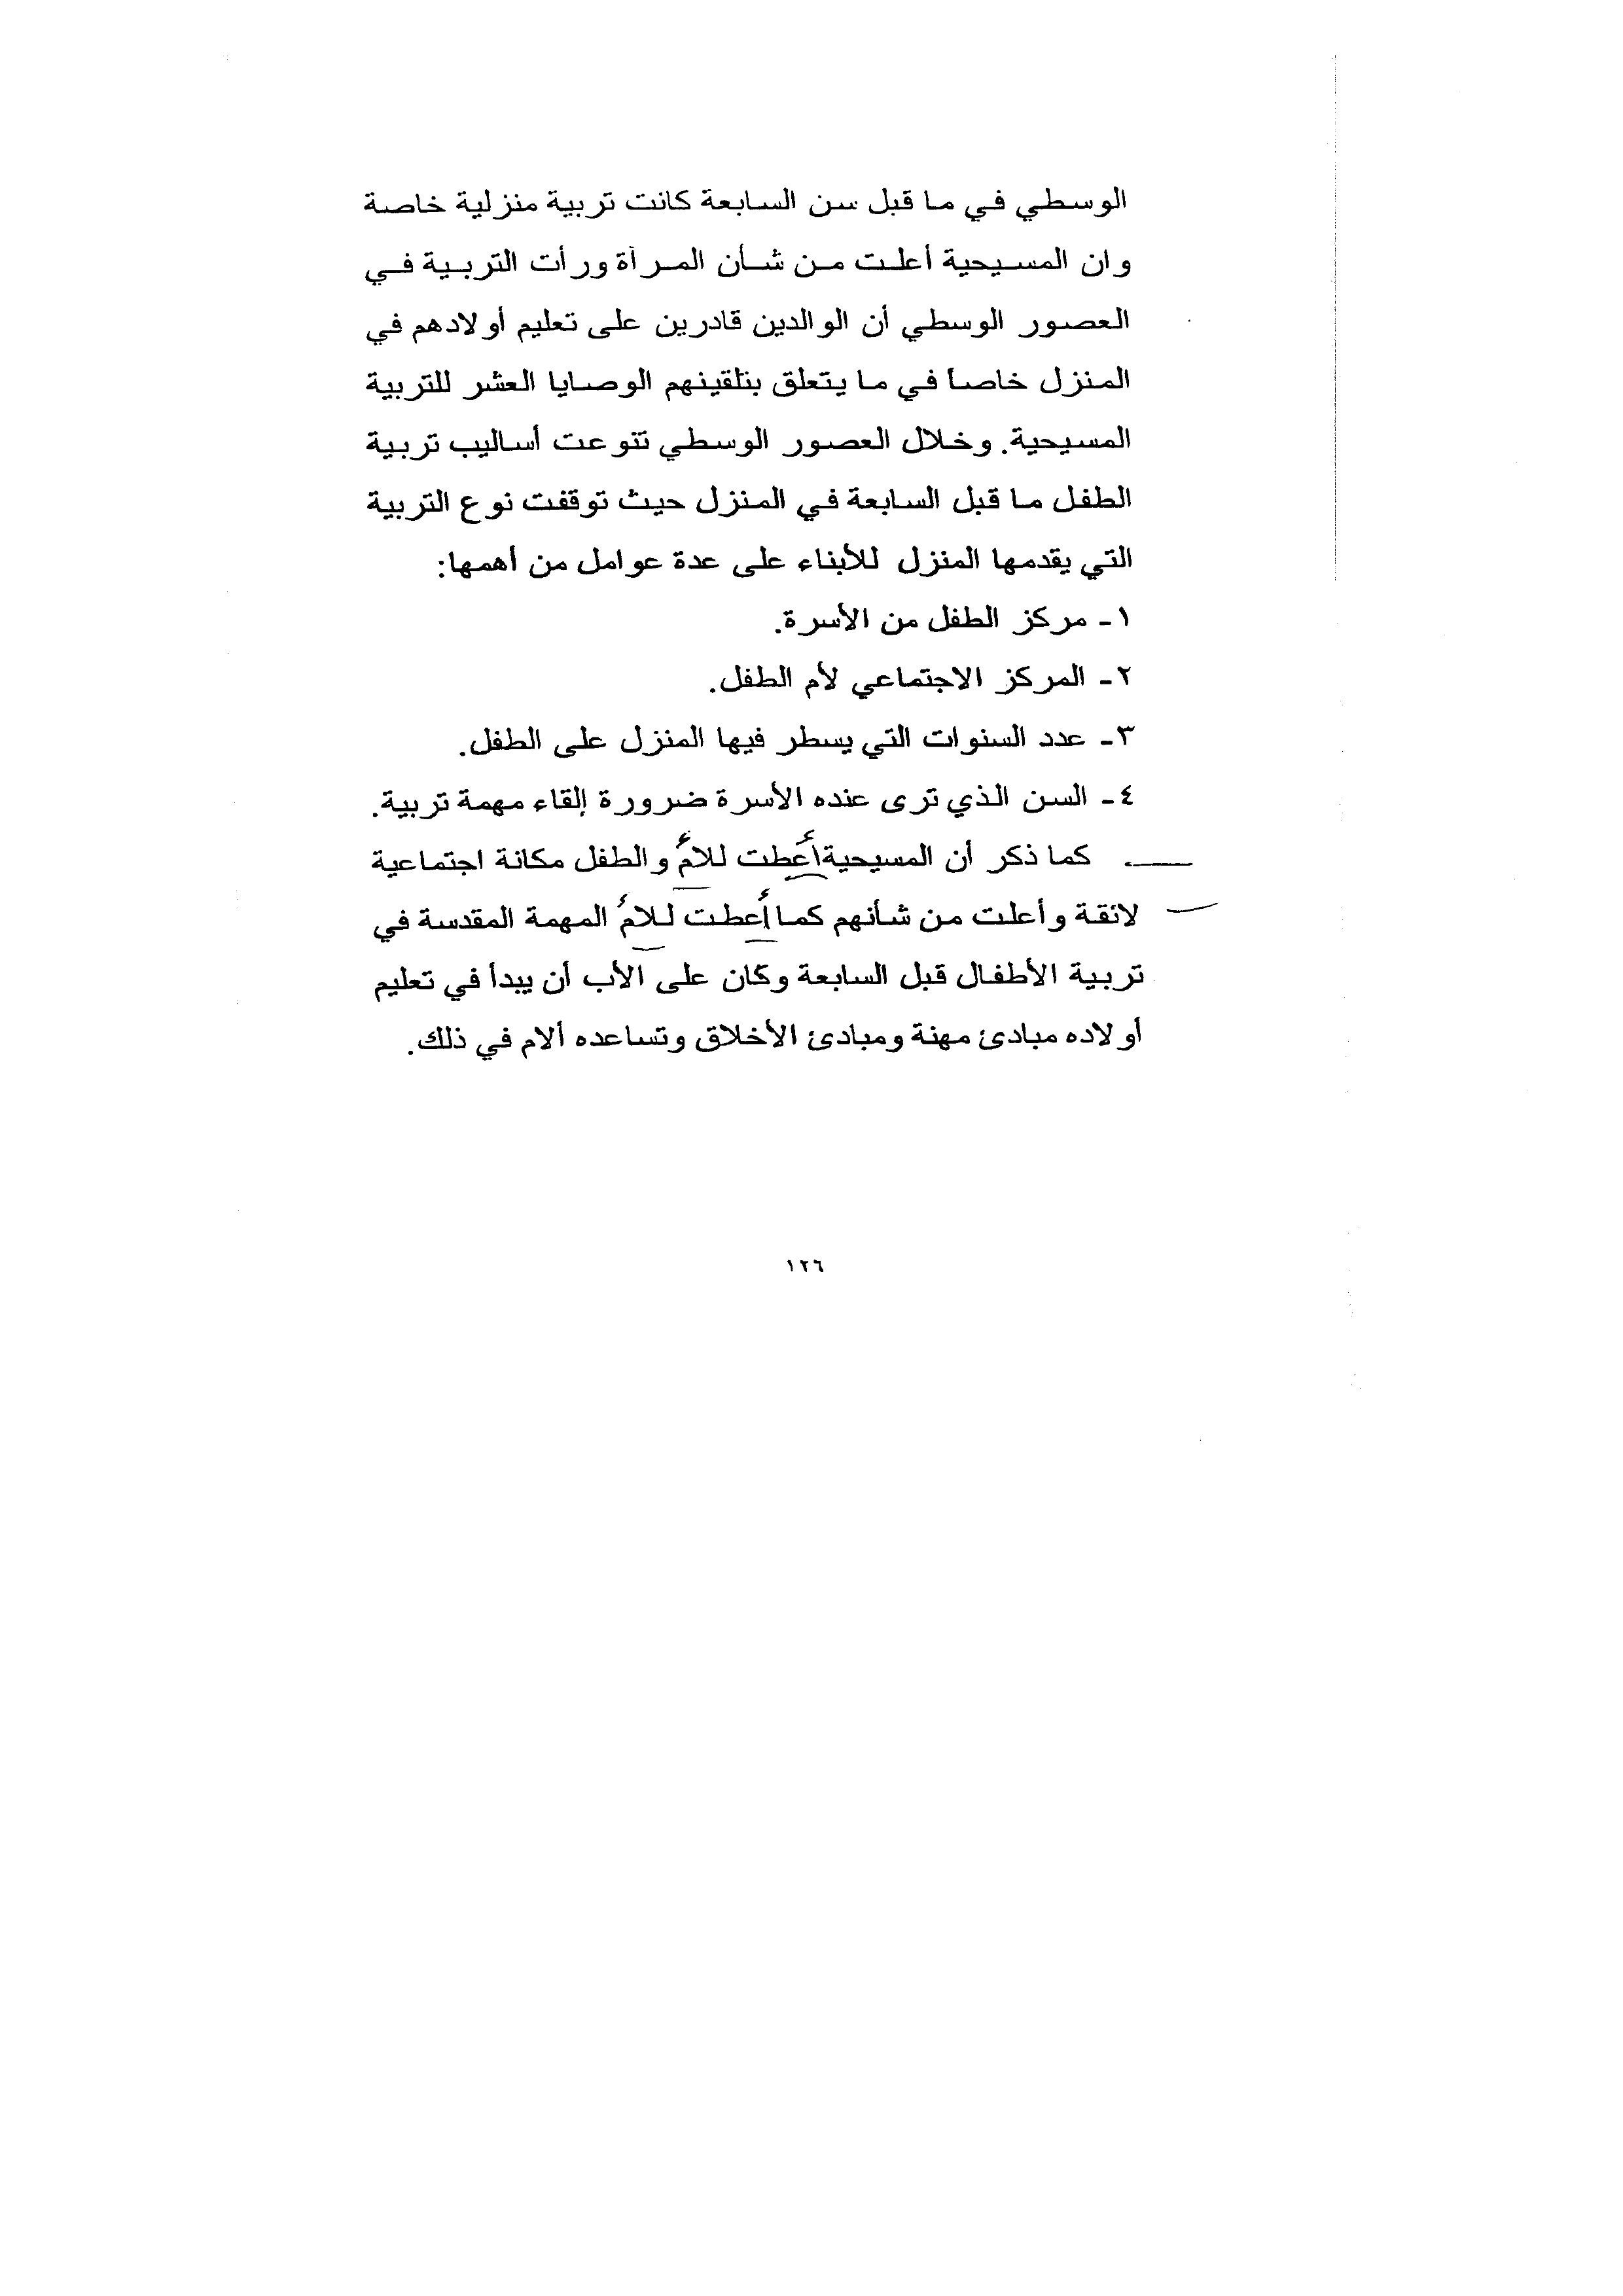 الوسطي في ما قبل سن السابعة كانت تربية منزلية خاصة
وان المسيحية أعلت من شأن المرأة ورأت التربية في
العصور الوسطي أن الوالدين قادرين على تعليم أولادهم في
المنزل خاصاً في ما يتعلق بتلقينهم الوصايا العشر للتربية
المسيحية. وخلال العصور الوسطي تنوعت أساليب تربية
الطفل ما قبل السابعة في المنزل حيث توقفت نوع التربية
التي يقدمها المنزل للأبناء على عدة عوامل من أهمها:
١- مركز الطفل من الأسرة.
٢- المركز الاجتماعي لأم الطفل.
٣- عدد السنوات التي يسطر فيها المنزل على الطفل.
٤- السن الذي ترى عنده الأسرة ضرورة إلقاء مهمة تربية.
كما ذكر أن المسيحية أعطت للأم والطفل مكانة اجتماعية
لائقة وأعلت من شأنهم كما أعطت للأم المهمة المقدسة في
تربية الأطفال قبل السابعة وكان على الأب أن يبدأ في تعليم
أولاده مبادئ مهنة ومبادئ الأخلاق وتساعده ألام في ذلك.
١٢٦